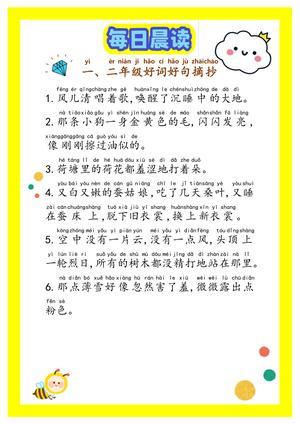 每日晨读
yī èr nián jí hǎo cí hǎo jù zhāichāo
一、二年级好词好句摘抄
fēng ér qīngchàng zhe gē huànxǐng le chénshuì zhōng de dà dì
1. 风儿清唱着歌,唤醒了沉睡中的大地。
nà tiáo xiǎo gǒu yì shēn jīn huáng sè de máo shǎn shǎn fā liàng
2. 那条小狗一身金黄色的毛,闪闪发亮,
xiàng gānggāng cā guò yóu sì de
像刚刚擦过油似的。
hé táng lǐ de hé huā dōu xiū sè dì dǎ zhe duǒ
3. 荷塘里的荷花都羞涩地打着朵。
yòu bái yòu nèn de cán gū niáng chī le jǐ tiān sāng yè yòu shuì
4. 又白又嫩的蚕姑娘,吃了几天桑叶,又睡
zài cán chuáng shàng tuō xià jiù yī shang huàn shàng xīn yī shang
在蚕床上,脱下旧衣裳,换上新衣裳。
kōng zhōng méi yǒu yí piàn yún méi yǒu yì diǎn fēng tóu dǐng shàng
5. 空中没有一片云,没有一点风,头顶上
yì lún liè rì suǒ yǒu de shù mù dōu méi jīng dǎ dì zhàn zài nà lǐ
一轮烈日,所有的树木都没精打地站在那里。
nà diǎn bó xuě hǎo xiàng hū rán hài le xiū wēi wēi lù chū diǎn
6. 那点薄雪好像忽然害了羞,微微露出点
fěn sè
粉色。